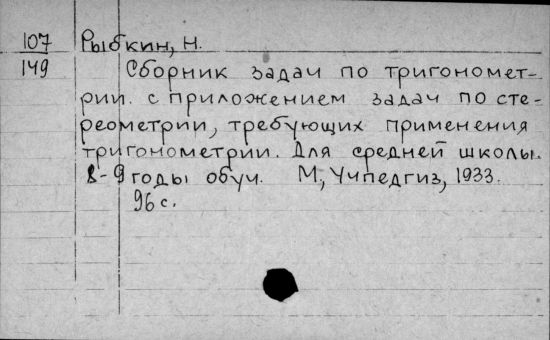 107 Рыбкин, Н.
149 Сборник задач по тригономет-
рии. с приложением задач по сте-
реометрии, требующих применения
тригонометрии. Для средней школы.
8-9 годы обуч. М, Учпедгиз, 1933.
96 с.